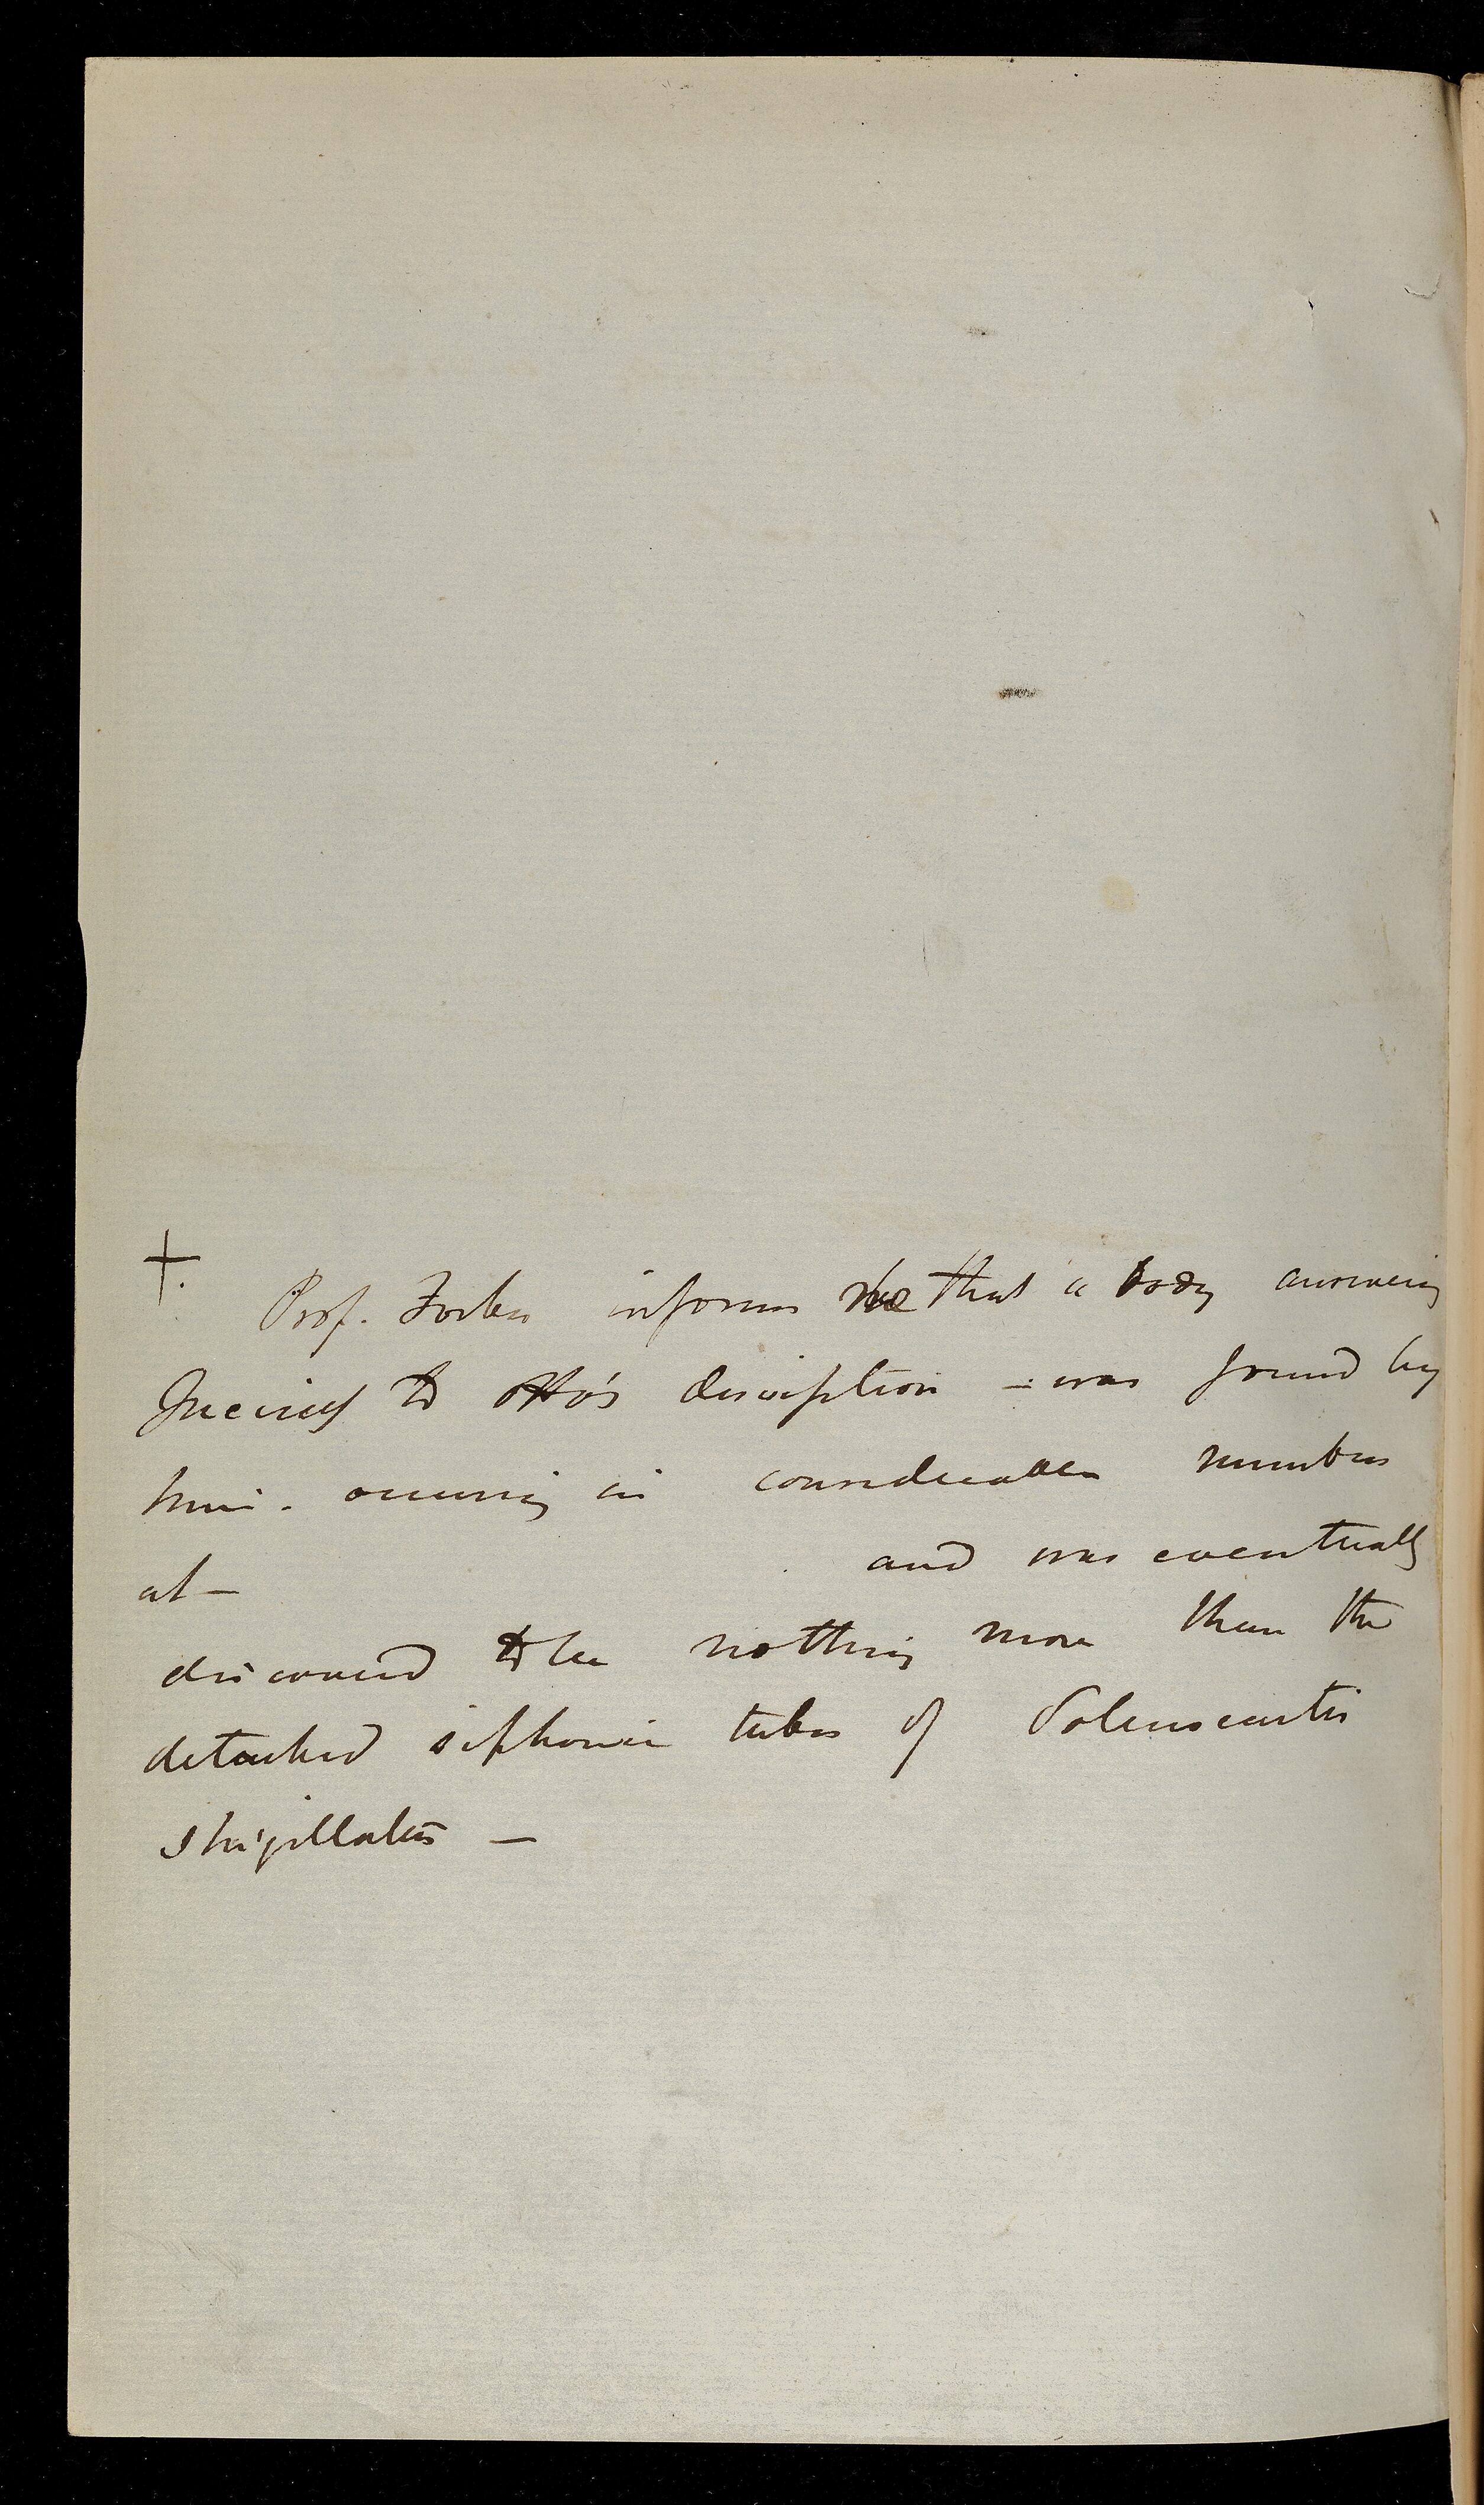 †.
Prof. Forbes informs me that a body answering
precisely to Otto's description – was found by
him. occurring in considerable numbers
at – and was eventually
discovered to be nothing more than the
detached siphonic tubes of Solenocurtis
strigillatus –